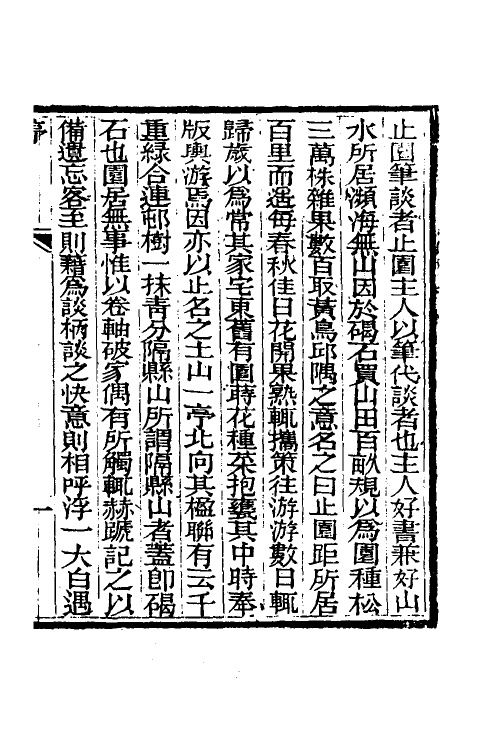 止園筆談者止園主人以筆代談者也主人好書兼好山
水所居瀕海無山因於碣石買山田百畝規以為園種松
三萬株雜果數百取黃鳥邱隅之意名之曰止園距所居
百里而遙每春秋佳日花開果熟輒攜策往游游數日輒
歸歲以為常其家宅東舊有園蒔花種菜抱甕其中時奉
版輿游焉因亦以止名之土山一亭北向其楹聯有云千
重緑合連邨樹一抹青分隔縣山所謂隔縣山者蓋卽碣
石也園居無事惟以卷軸破家偶有所觸輒赫蹏記之以
備遺忘客至則藉為談柄談之快意則相呼浮一大白遇
一